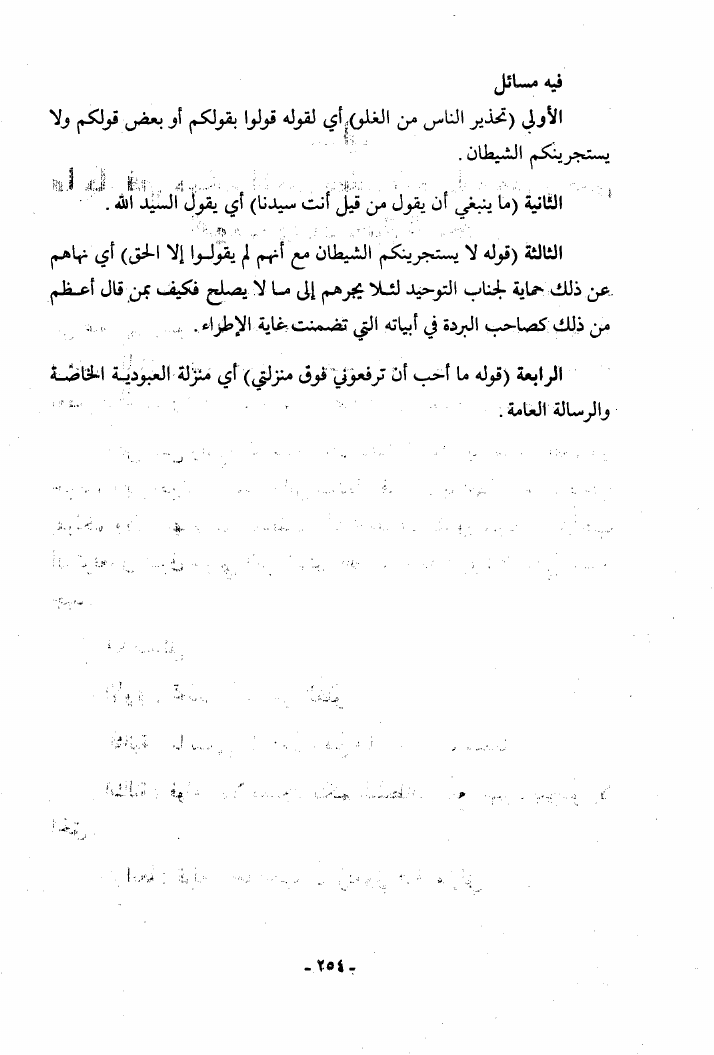 فيه مسائل
الأولى (تحذير الناس من الغلو) أي لقوله قولوا بقولكم أو بعض قولكم ولا
يستجرينكم الشيطان .
الثانية (ما ينبغي أن يقول من قيل أنت سيدنا) أي يقول السيد الله .
الثالثة (قوله لا يستجرينكم الشيطان مع أنهم لم يقولوا إلا الحق) أي نهاهم
عن ذلك حماية لجناب التوحيد لئلا يجرهم إلى ما لا يصلح فكيف بمن قال أعظم
من ذلك كصاحب البردة في أبياته التي تضمنت غاية الإطراء .
الرابعة (قوله ما أحب أن ترفعوني فوق منزلتي) أي منزلة العبودية الخاصة
والرسالة العامة .
- ٢٥٤ -